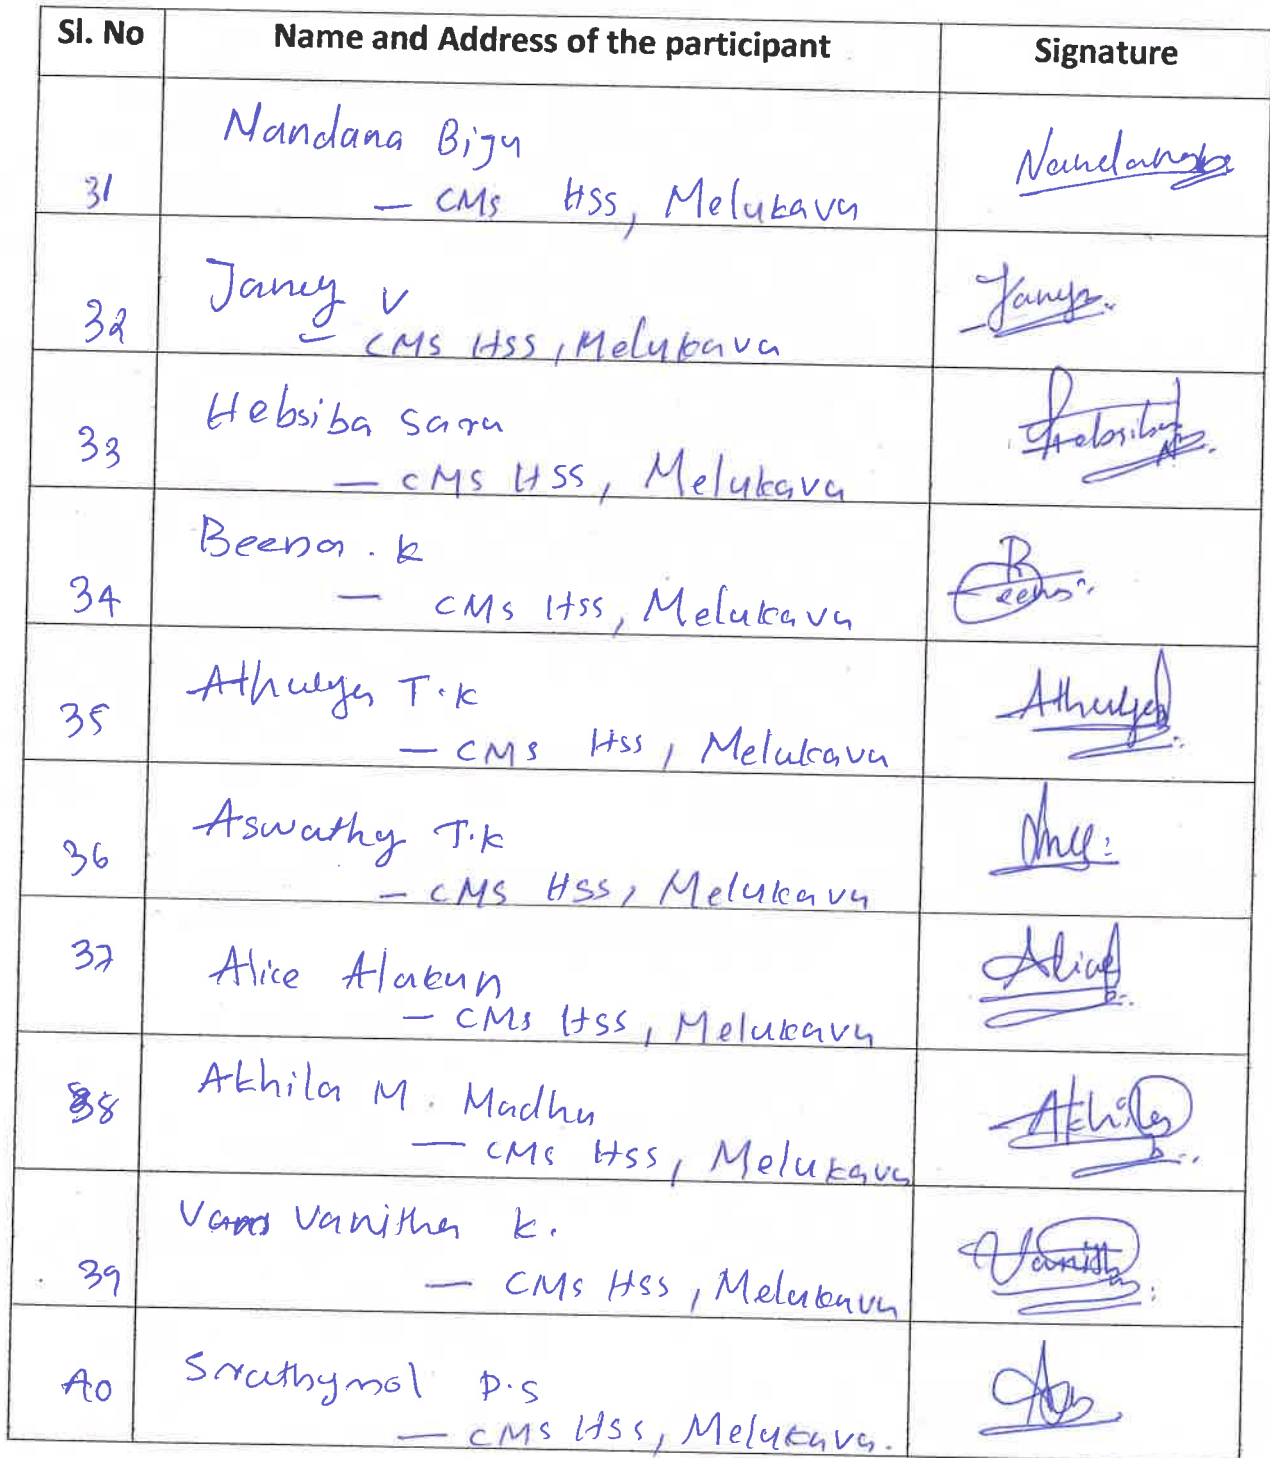 Sl. No Name and Address of the participant Signature
Nandana Biju
31 — CMS HSS, Melukava Nandana
Jancy V
32 — CMS HSS, Melukava Jancy
Hebsiba Sara
33 — CMS HSS, Melukava Hebsiba
Beena . k
34 — CMS HSS, Melukava Beena
Athulya T.K
35 — CMS HSS, Melukava Athulya
Aswathy T.K
36 — CMS HSS, Melukava
37 Alice
— CMS HSS, Melukava Alice
38 Akhila M. Madhu
— CMS HSS, Melukava Akhila
Vanitha k.
39 — CMS HSS, Melukava Vanitha
40 P.S
— CMS HSS, Melukava.